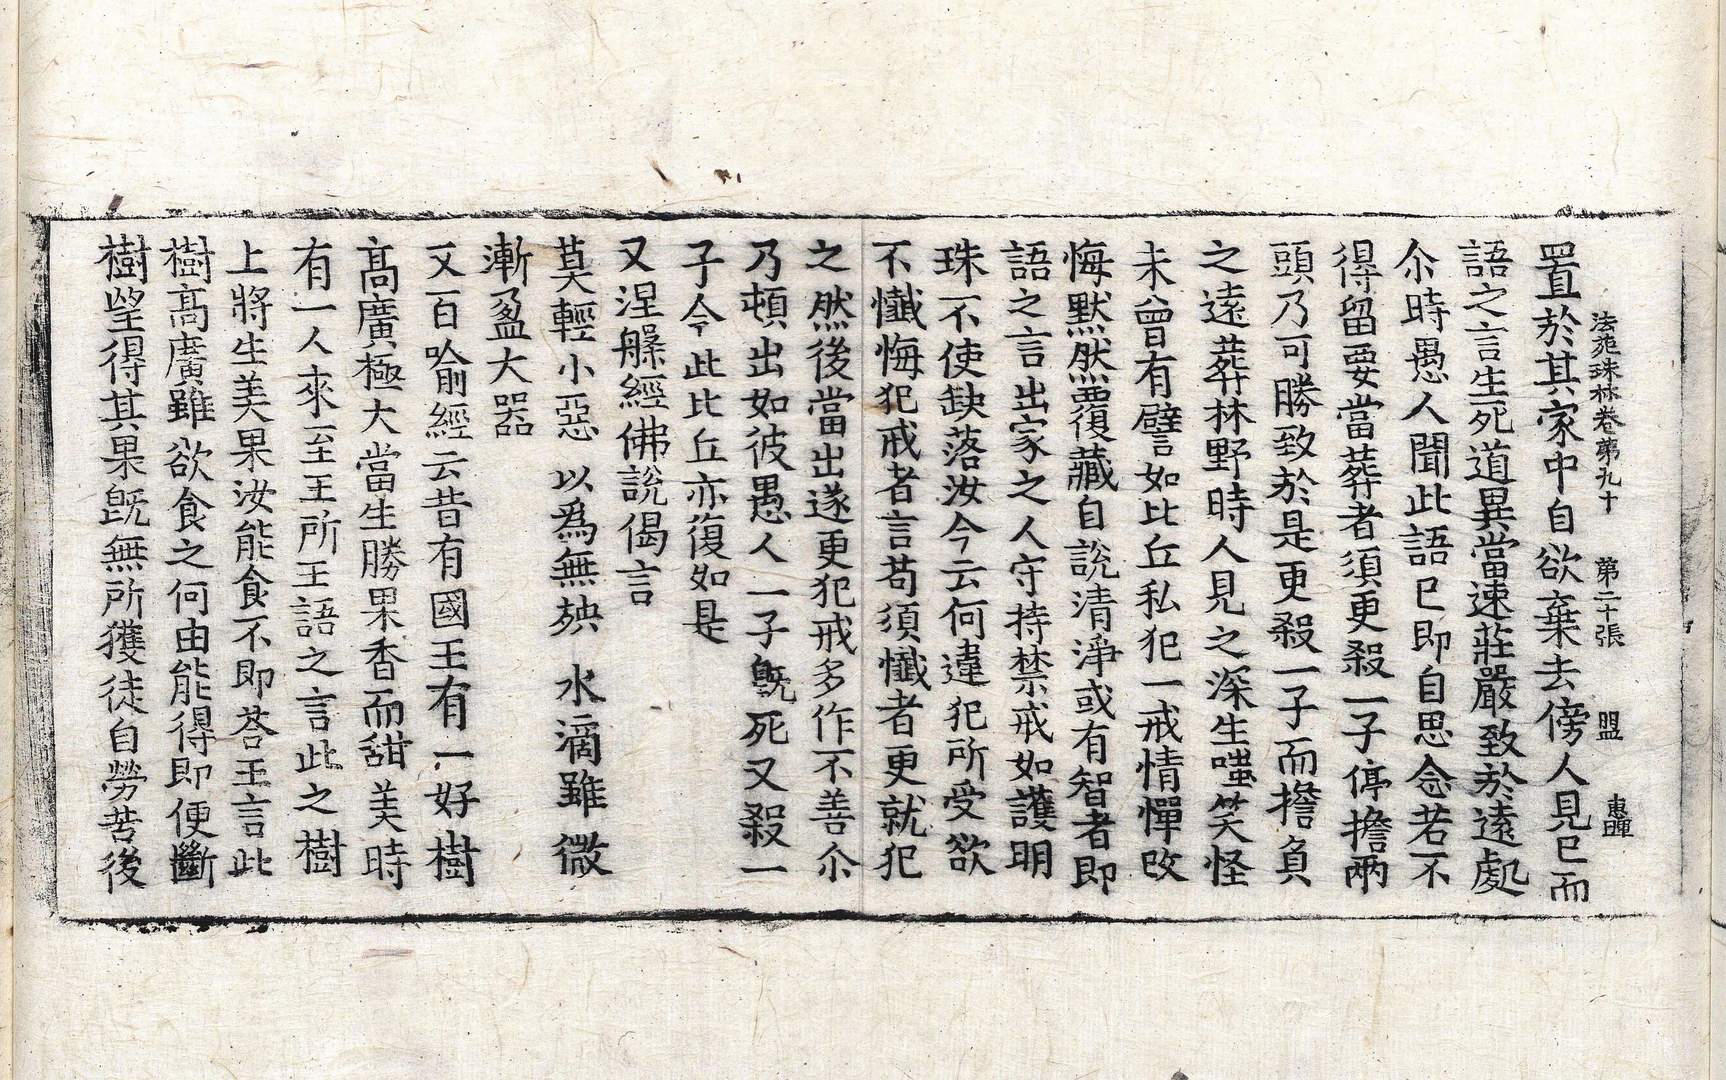 法苑珠林卷第九十 第二十張 盟 惠暉
置於其家中自欲棄去傍人見已而
語之言生死道異當速莊嚴致於遠處
尒時愚人聞此語已即自思念若不
得留要當葬者須更殺一子停擔兩
頭乃可勝致於是更殺一子而擔負
之遠葬林野時人見之深生嗤笑怪
未曾有譬如比丘私犯一戒情憚改
悔默然覆藏自說清淨或有智者即
語之言出家之人守持禁戒如護明
珠不使缺落汝今云何違犯所受欲
不懺悔犯戒者言苟須懺者更就犯
之然後當出遂更犯戒多作不善尒
乃頓出如彼愚人一子旣死又殺一
子今此比丘亦復如是
又涅槃經佛說偈言
莫輕小惡 以為無殃 水滴雖微
漸盈大器
又百喻經云昔有國王有一好樹
高廣極大當生勝果香而甜美時
有一人來至王所王語之言此之樹
上將生美果汝能食不即荅王言此
樹高廣雖欲食之何由能得即便斷
樹望得其果旣無所獲徒自勞苦後